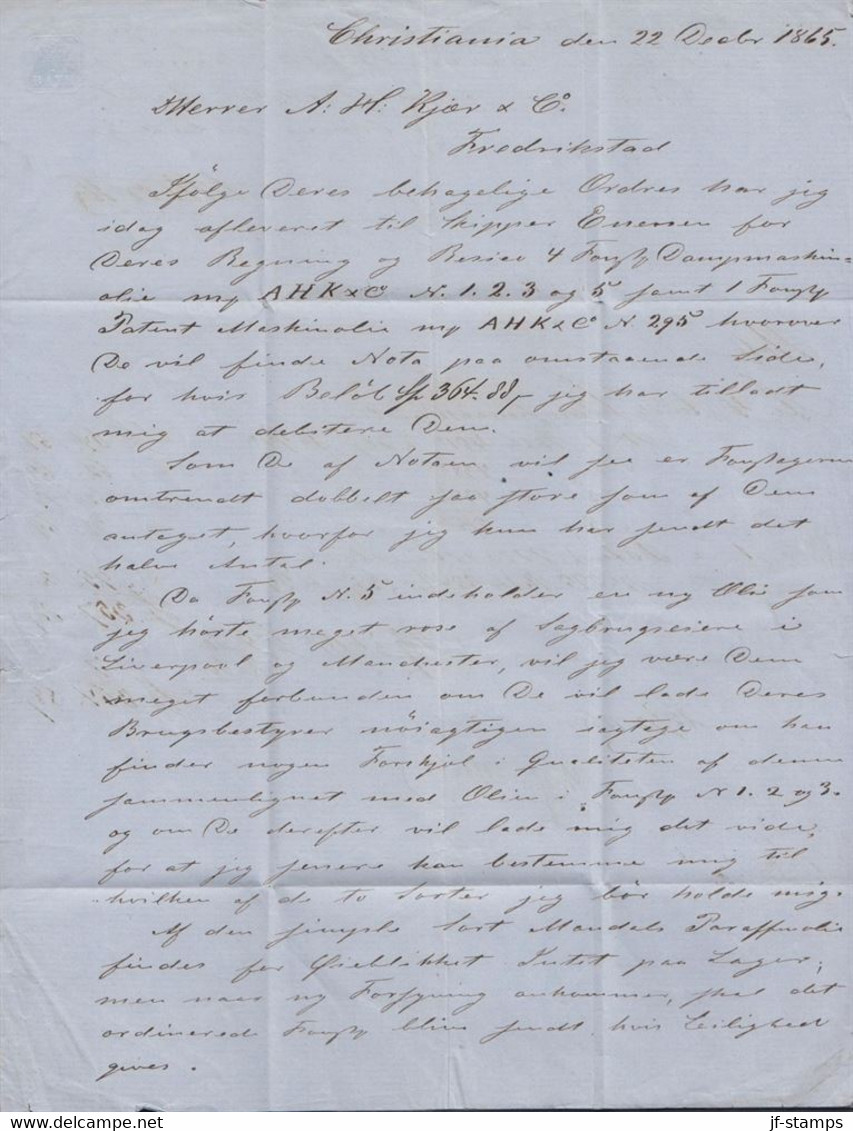 Christiania den 22 Decbr 1865.
Herrer A: H: Kjær & Co.
Fredrikstad
Ifölge Deres behagelige Ordres har jeg
idag afleveret til Skipper Enersen for
Deres Regning og Risico 4 Foustg Dampmaskin-
olie mg AHK&Co N. 1. 2. 3 og 5 samt 1 Foustg
Patent Maskinolie mg AHK&Co N. 295 hvorover
De vil finde Nota paa omstaaende Side,
for hvis Belöb 364. 88 jeg har tilladt
mig at debitere Dem.
Som De af Notaen vil see er Foustagerne
omtrendt dobbelt saa store som af Dem
antaget, hvorfor jeg kun har sendt det
halve Antal.
Da Foustg N. 5 indeholder en ny Olie som
jeg hörte meget rose af Sagbrugseiere i
Liverpool og Manchester, vil jeg være Dem
meget forbunden om De vil lade Deres
Brugsbestyrer nöiagtigen iagtage om han
finder nogen Forskjel i Qvaliteten af denne
sammenlignet med Olien i Foustg N 1. 2 og 3.
og om De derefter vil lade mig det vide,
for at jeg senere kan bestemme mig til
hvilken af de to Sorter jeg bör holde mig.
Af den simple Sort Mandals Paraffinolie
findes for Öieblikket Intet paa Lager,
men naar ny Forsyning ankommer, skal det
ordinerede Foustg blive sendt, hvis Leilighed
gives.
jf-stamps
www.delcampe.net